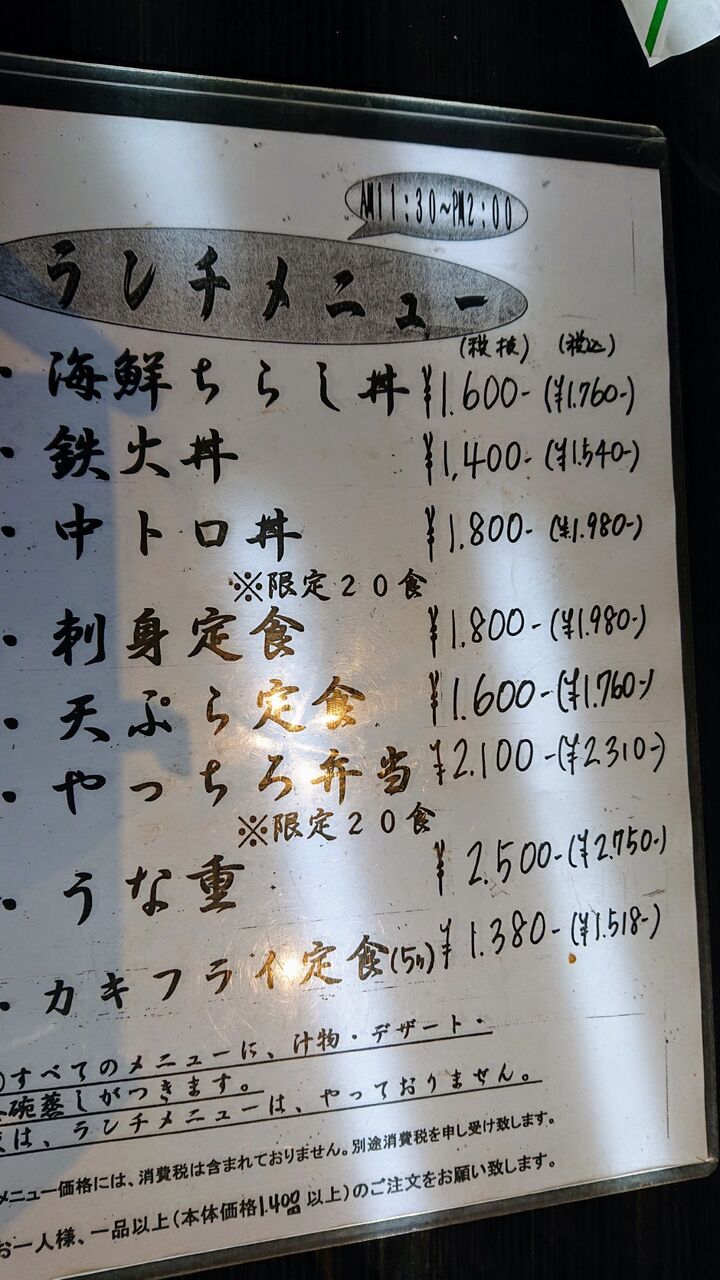 AM11:30~PM2:00
ランチメニュー
(税抜) (税込)
・海鮮ちらし丼 ¥1.600- (¥1.760-)
・鉄火丼 ¥1,400- (¥1.540-)
・中トロ丼 ¥1.800- (¥1.980-)
※限定20食
・刺身定食 ¥1.800- (¥1.980-)
・天ぷら定食 ¥1.600- (¥1.760-)
・やっちろ弁当 ¥2.100- (¥2.310-)
※限定20食
・うな重 ¥2.500- (¥2.750-)
・カキフライ定食(5ヶ) ¥1.380- (¥1.518-)
)すべてのメニューに、汁物・デザート・
碗蒸しがつきます。
は、ランチメニューは、やっておりません。
メニュー価格には、消費税は含まれておりません。別途消費税を申し受け致します。
お一人様、一品以上(本体価格1.400円以上)のご注文をお願い致します。